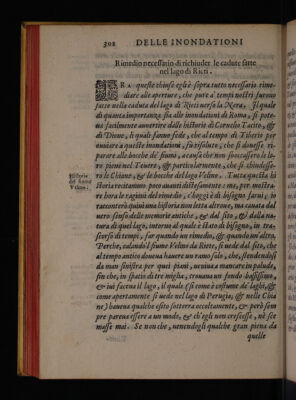 302 DELLE INONDATIONI
Rimedio necessario di richiuder le cadute fatte
nel lago di Rieti.
FRA queste chiuse egli è sopra tutto necessario rime-
diare alle aperture, che pure a' tempi nostri furono
fatte nella caduta del lago di Rieti verso la Nera. Il quale
di quanta importanza sia alle inondationi di Roma, si pote-
ua facilmente auuertire dalle historie di Cornelio Tacito, &
di Dione, li quali fanno fede, che al tempo di Tiberio per
ouuiare a queste inondationi, fù risoluto, che si douesse ri-
parare alle bocche de' fiumi, acciò che non potessero le lo-
ro pieni nel Teuere, & particolarmente, che si chiudesse-
ro le Chiane, & le bocche del lago Velino. Tutta questa hi
Historia
del fiume
Velino.
storia recitammo poco auanti distesamente: ma, per mostra-
re hora le ragioni del rimedio, c'hoggi è di bisogno farui; io
racconterò quiui una historia non letta altroue, ma cauata dal
uero senso delle memorie antiche, & dal sito, & dalla na-
tura di quel lago, intorno al quale è stato di bisogno, in tra-
scorso di tempi, far quando un rimedio, & quando un'altro.
Perche, calando'l fiume Velino da Riete, si uede dal sito, che
al tempo antico doueua hauere un ramo solo, che, stendendosi
da man sinistra per quei piani, ueniua a mancare in palude,
sin che, in spatio di tre miglia, trouaua un fondo bassissimo,
& iui faceua il lago, il quale (sì come è costume de' laghi, &
come apertamente si uede nel lago di Perugia, & nelle Chia
ne) haueua qualche esito sotterra occultamente, & però sem
pre pareua essere a un modo, & ch'egli non crescesse, nè sce
masse mai. Se non che, uenendogli qualche gran piena da
quelle